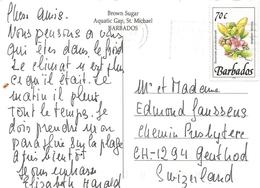 Brown Sugar
Aquatic Gap, St. Michael
BARBADOS
Chers amis.
Nous pensons à vous
qui êtes dans le froid
Le climat n'est plus
ce qu'il était. Le
matin il pleut
Tout le temps. Je
dois prendre mon
parapluie sur la plage
à bientôt
Je vous embrasse
Elizabeth Harold
70c
Barbados
Mr et Madame
Edmond Janssens
Chemin Presbytère
CH-1294 Genthod
Switzerland